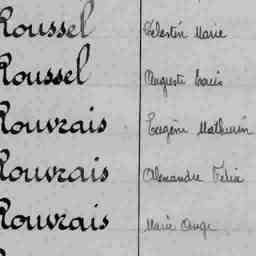 Roussel Célestin Marie
Roussel Auguste Louis
Rouvrais Eugène Mathurin
Rouvrais Alexandre Félix
Rouvrais Marie Ange